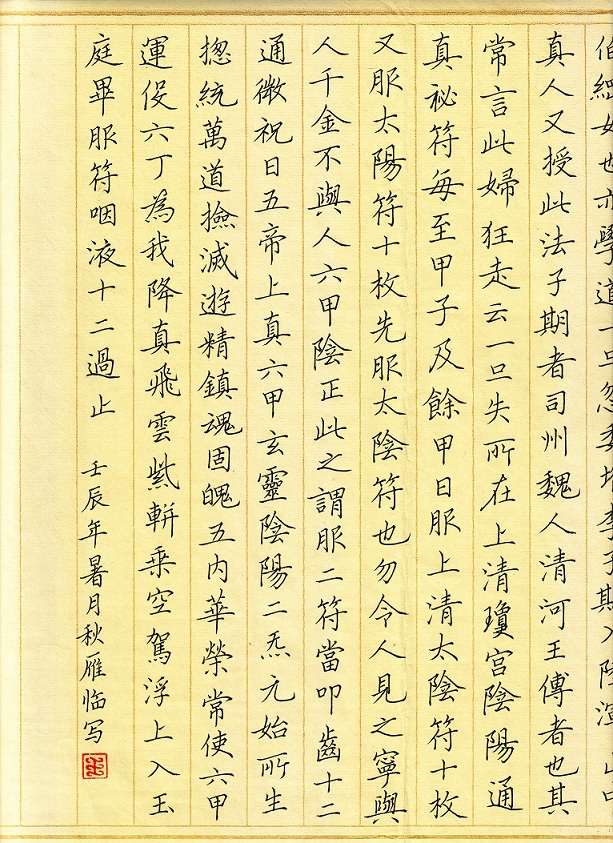 女也亦學道一旦忽委李子期入陸渾山中
真人又授此法子期者司州魏人清河王傅者也其
常言此婦狂走云一旦失所在上清瓊宮陰陽通
真祕符每至甲子及餘甲日服上清太陰符十枚
又服太陽符十枚先服太陰符也勿令人見之寧與
人千金不與人六甲陰正此之謂服二符當叩齒十二
通微祝曰五帝上真六甲玄靈陰陽二炁元始所生
揔統萬道撿滅遊精鎮魂固魄五内華榮常使六甲
運役六丁為我降真飛雲紫軿乗空駕浮上入玉
庭畢服符咽液十二過止 壬辰年暑月秋雁临写